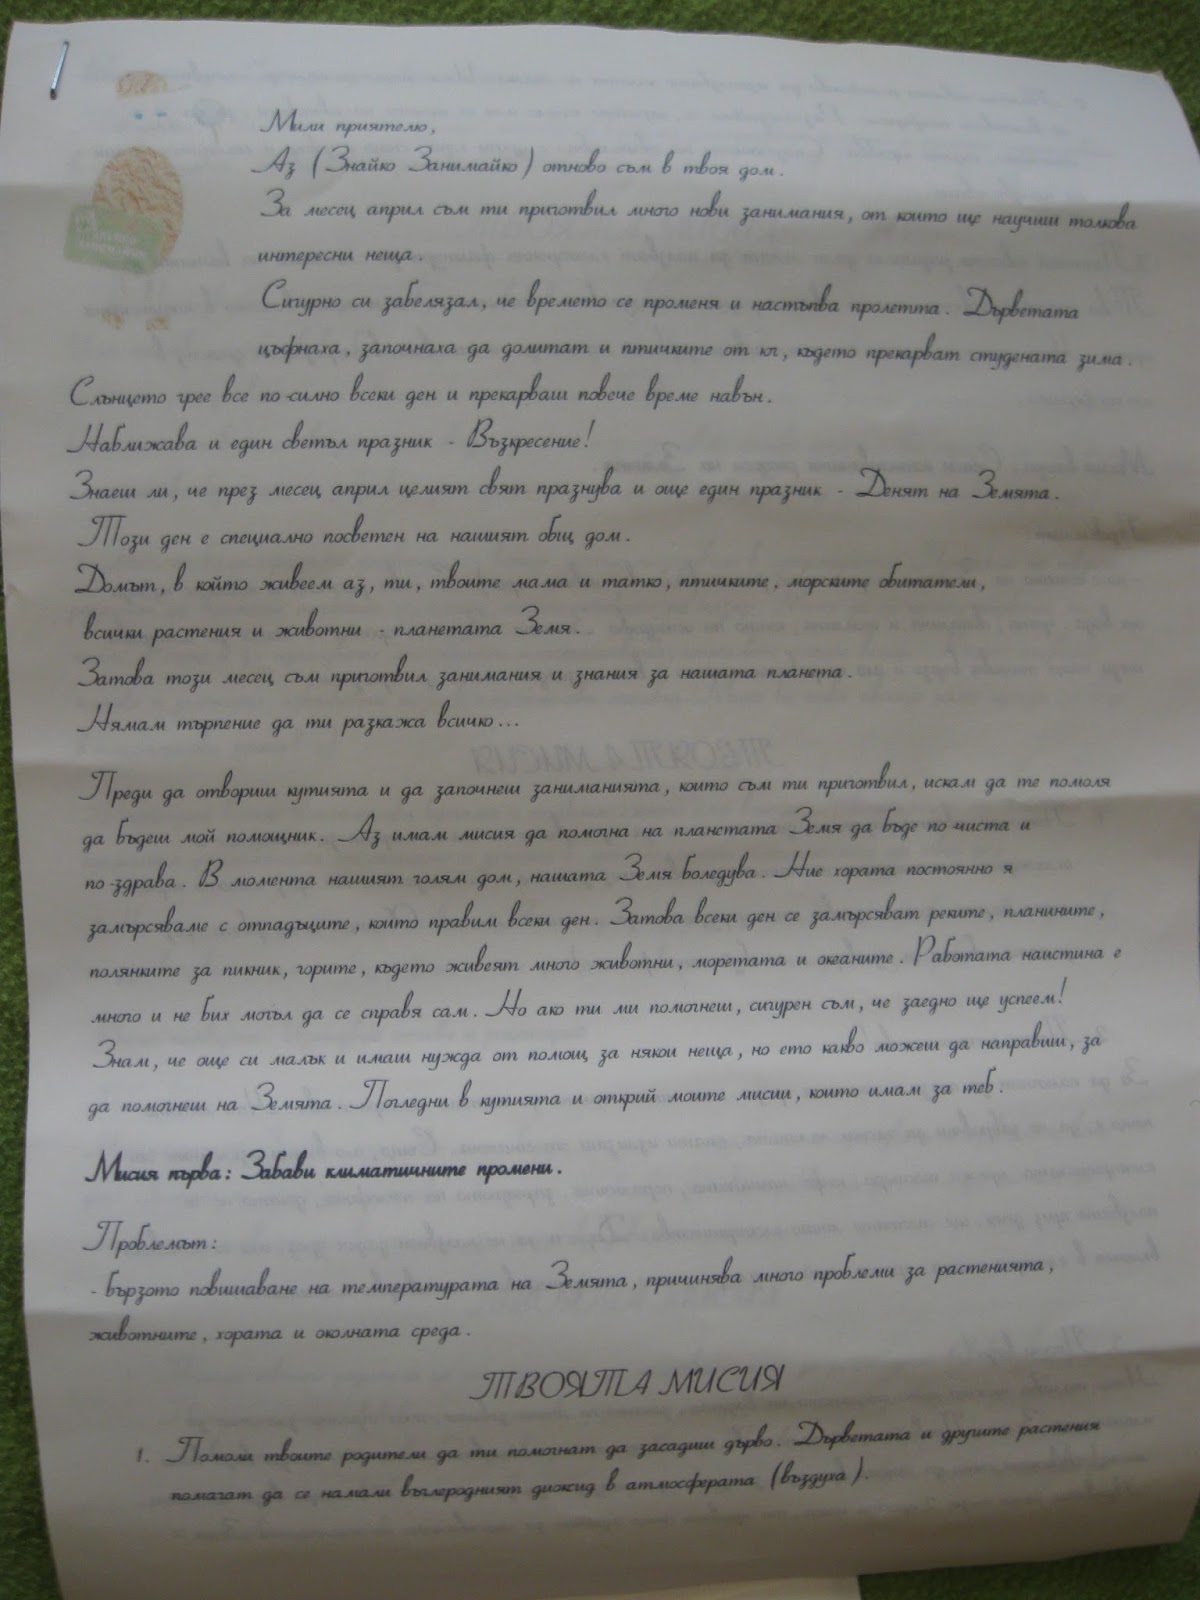 Мили приятелю,
Аз (Знайко Занимайко) отново съм в твоя дом.
За месец април съм ти приготвил много нови занимания, от които ще научиш толкова
интересни неща.
Сигурно си забелязал, че времето се променя и настъпва пролетта. Дърветата
цъфнаха, започнаха да долитат и птичките от юг, където прекарват студената зима.
Слънцето грее все по-силно всеки ден и прекарваш повече време навън.
Наближава и един светъл празник - Възкресение!
Знаеш ли, че през месец април целият свят празнува и още един празник - Денят на Земята.
Този ден е специално посветен на нашият общ дом.
Домът, в който живеем аз, ти, твоите мама и татко, птичките, морските обитатели,
всички растения и животни - планетата Земя.
Затова този месец съм приготвил занимания и знания за нашата планета.
Нямам търпение да ти разкажа всичко...
Преди да отвориш кутията и да започнеш заниманията, които съм ти приготвил, искам да те помоля
да бъдеш мой помощник. Аз имам мисия да помогна на планетата Земя да бъде по-чиста и
по-здрава. В момента нашият голям дом, нашата Земя боледува. Ние хората постоянно я
замърсяваме с отпадъците, които правим всеки ден. Затова всеки ден се замърсяват реките, планините,
полянките за пикник, горите, където живеят много животни, моретата и океаните. Работата наистина е
много и не бих могъл да се справя сам. Но ако ти ми помогнеш, сигурен съм, че заедно ще успеем!
Знам, че още си малък и имаш нужда от помощ за някои неща, но ето какво можеш да направиш, за
да помогнеш на Земята. Погледни в кутията и открий моите мисии, които имам за теб.
Мисия първа: Забави климатичните промени.
Проблемът:
- бързото повишаване на температурата на Земята, причинява много проблеми за растенията,
животните, хората и околната среда.
ТВОЯТА МИСИЯ
1. Помоли твоите родители да ти помогнат да засадиш дърво. Дърветата и другите растения
помагат да се намали въглеродният диоксид в атмосферата (въздуха).